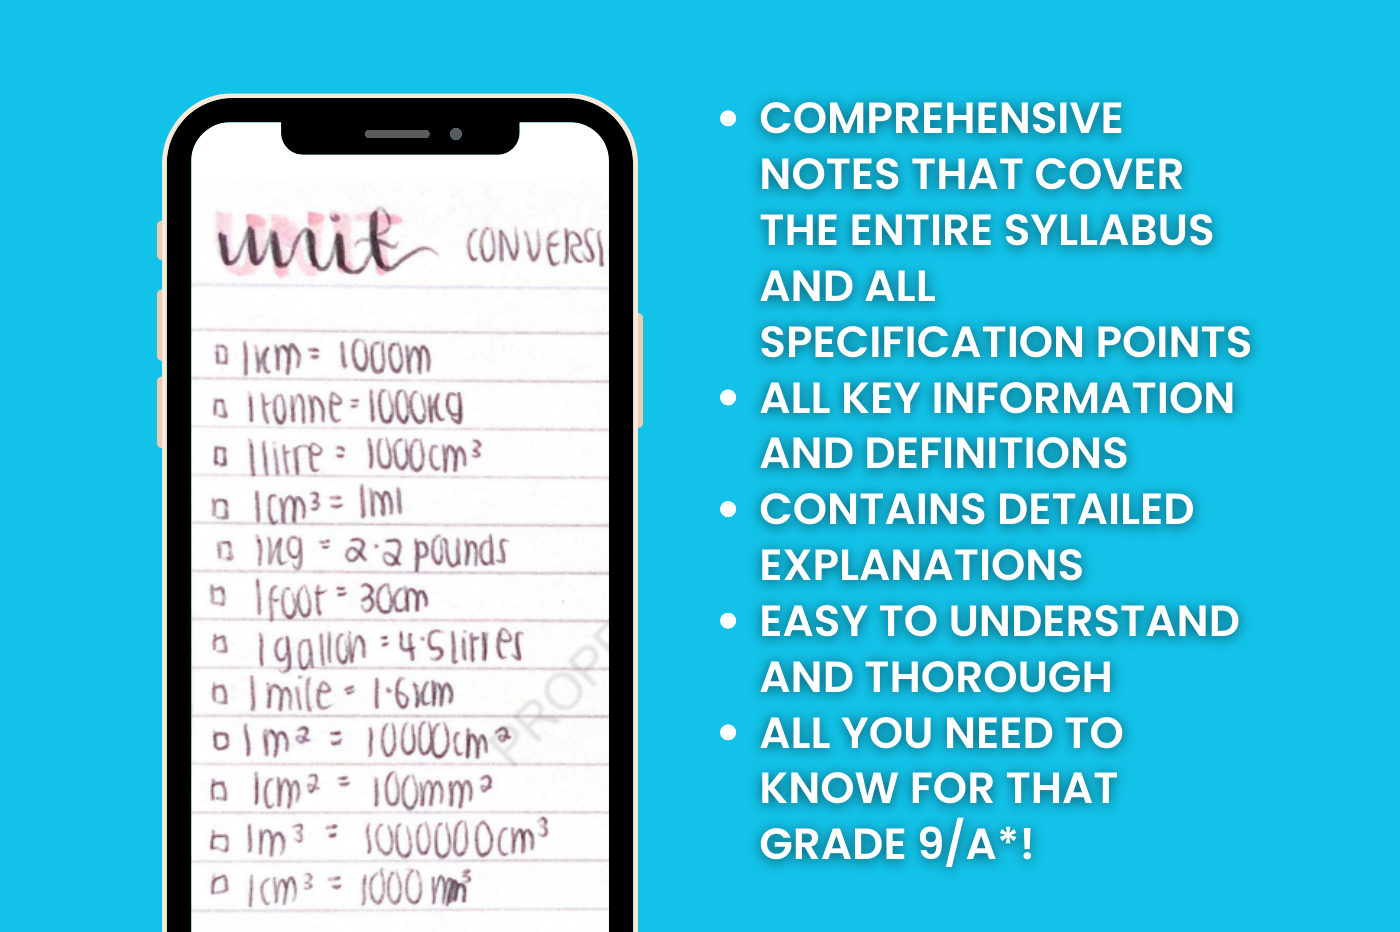 unit CONVERSI
1km = 1000m
1 tonne = 1000kg
1 litre = 1000cm³
1cm³ = 1ml
1kg = 2.2 pounds
1 foot = 30cm
1 gallon = 4.5 litres
1 mile = 1.6km
1m² = 10000cm²
1cm² = 100mm²
1m³ = 1000000cm³
1cm³ = 1000mm³
PROPE
• COMPREHENSIVE
NOTES THAT COVER
THE ENTIRE SYLLABUS
AND ALL
SPECIFICATION POINTS
• ALL KEY INFORMATION
AND DEFINITIONS
• CONTAINS DETAILED
EXPLANATIONS
• EASY TO UNDERSTAND
AND THOROUGH
• ALL YOU NEED TO
KNOW FOR THAT
GRADE 9/A*!